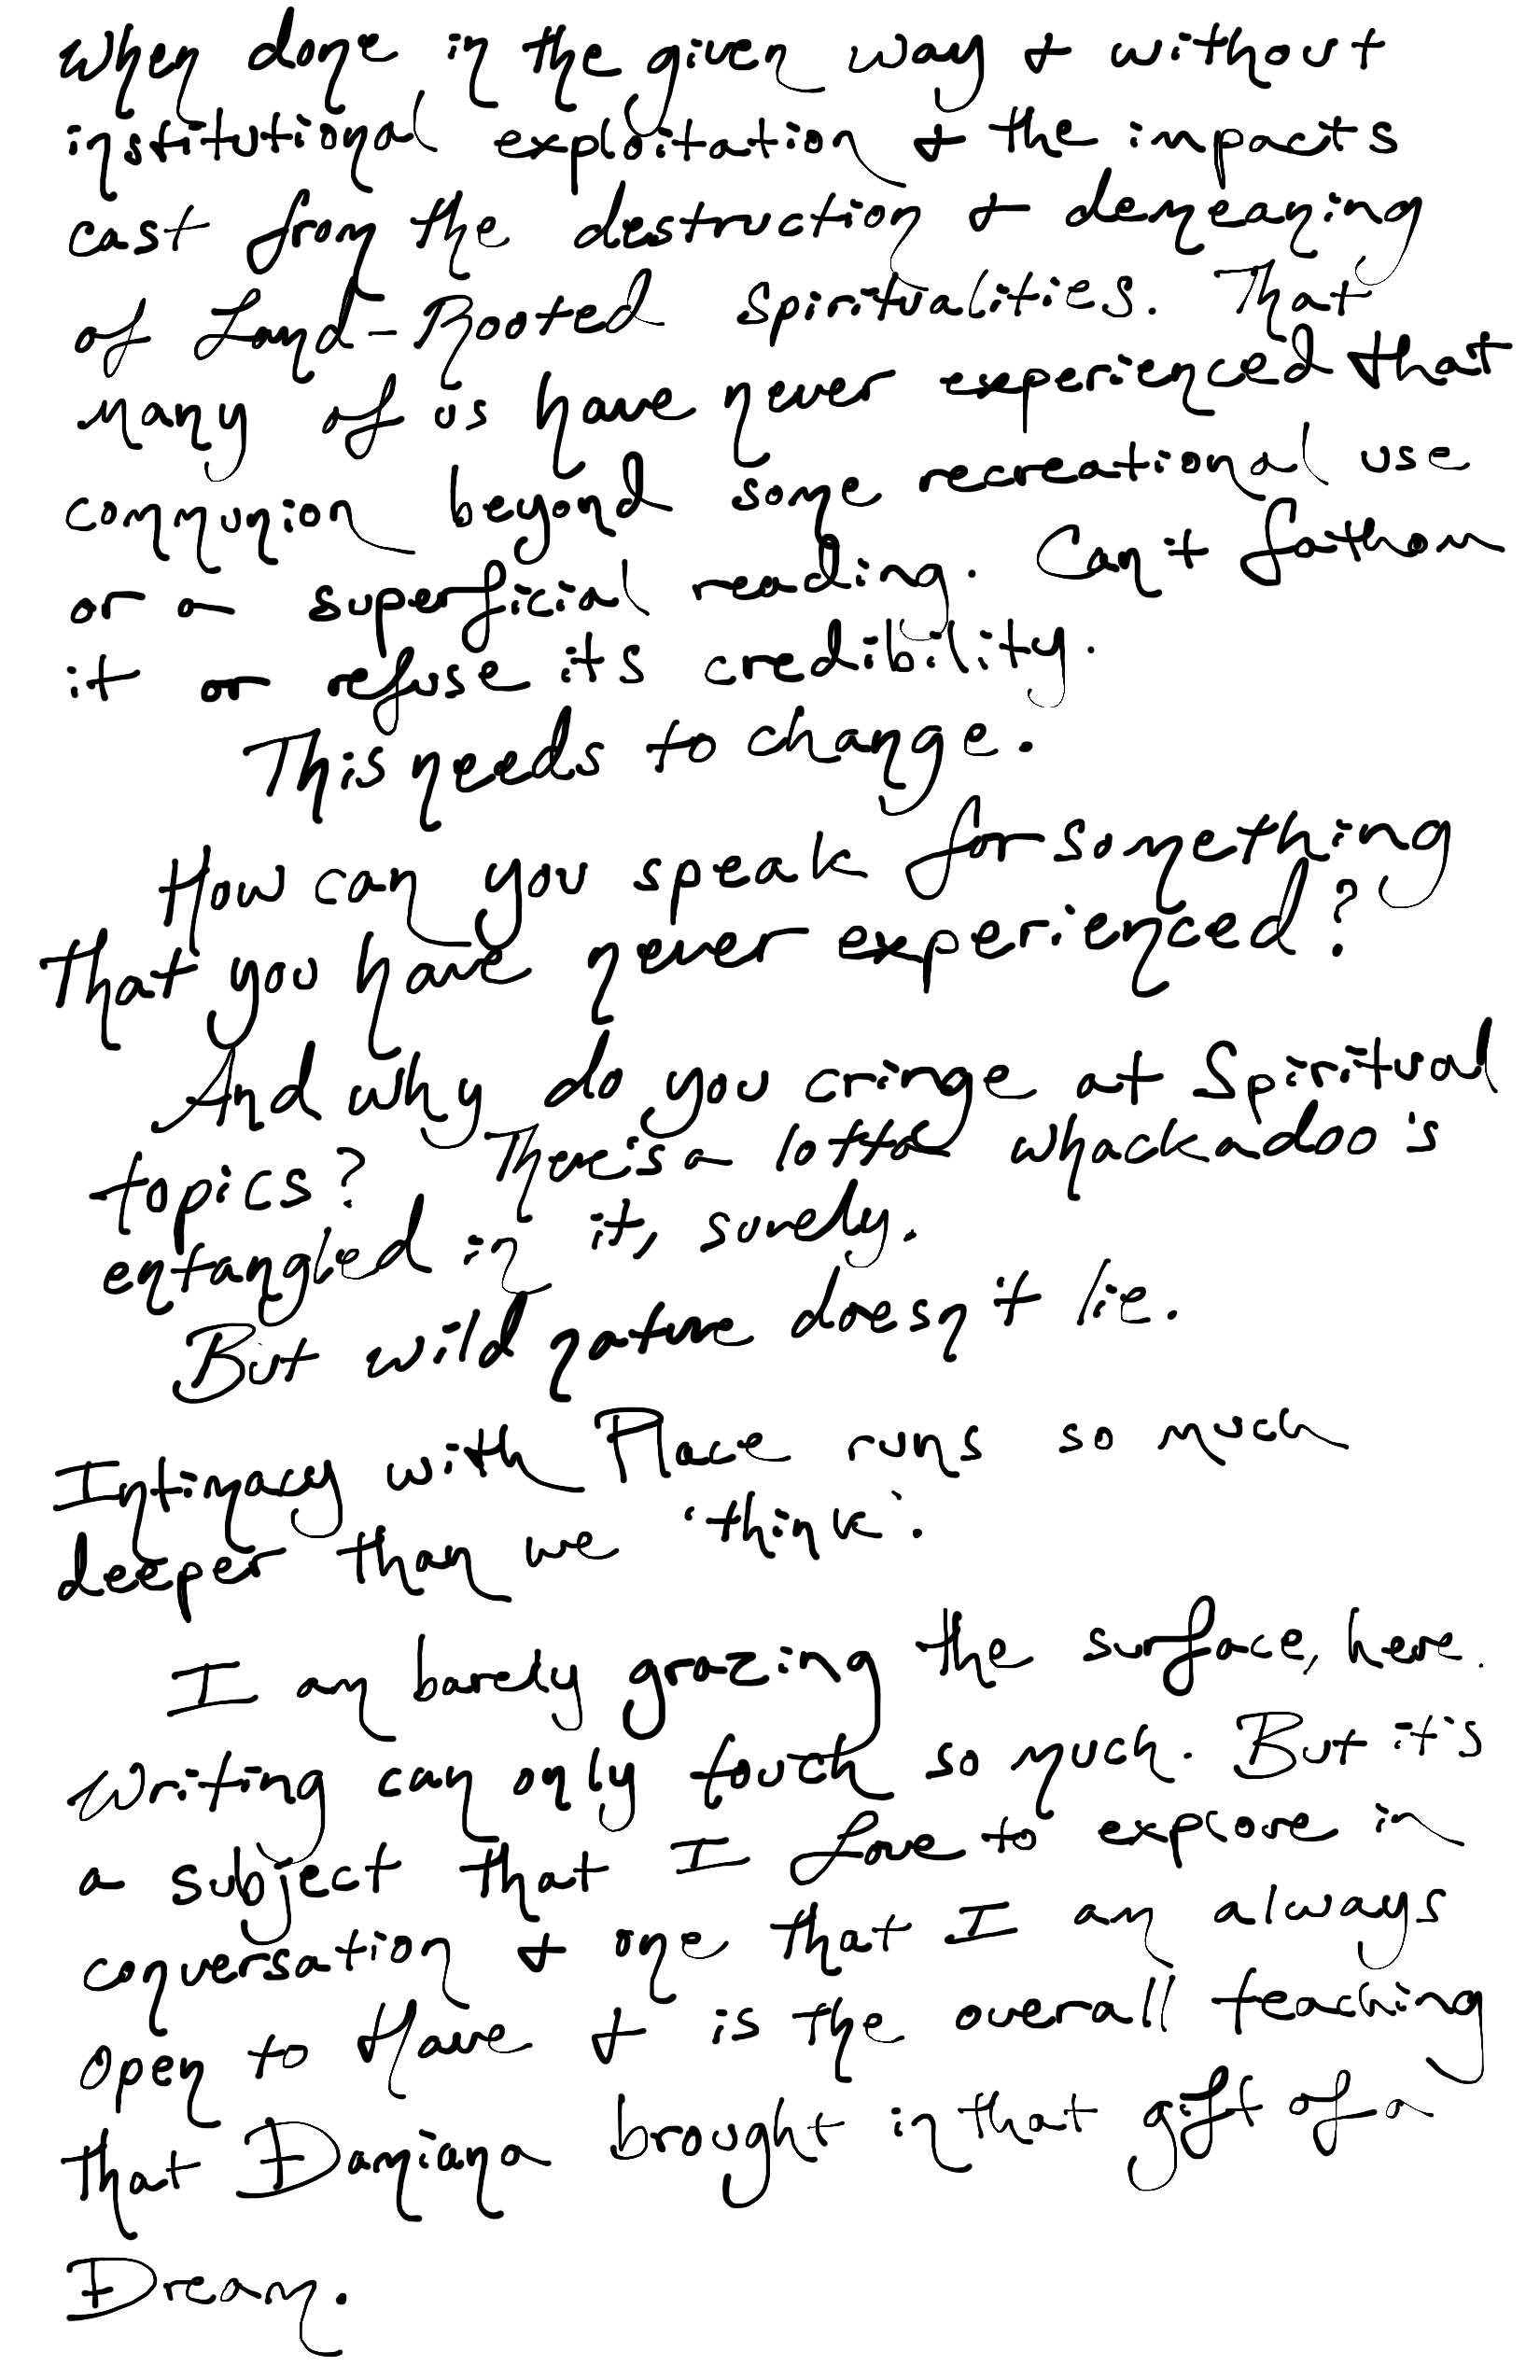 When done in the given way + without
institutional exploitation + the impacts
cast from the destruction + demeaning
of Land-Rooted Spiritualities. That
many of us have never experienced that
communion beyond some recreational use
or a superficial reading. Can't fathom
it or refuse its credibility.
This needs to change.
How can you speak for something
that you have never experienced?
And why do you cringe at Spiritual
topics? There's a lotta whackadoo's
entangled in it, surely.
But wild nature doesn't lie.
Intimacy with Place runs so much
deeper than we 'think'.
I am barely grazing the surface, here.
Writing can only touch so much. But it's
a subject that I Love to explore in
conversation + one that I am always
open to Have + is the overall teaching
that Damiana brought in that gift of a
Dream.